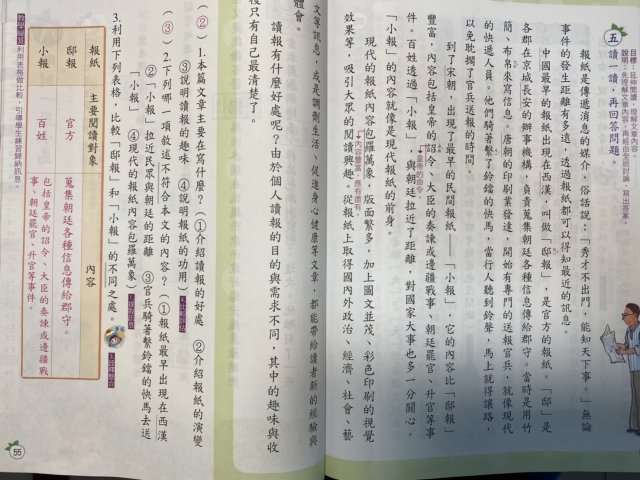 目標：延伸閱讀，理解文章內容。
說明：先理解文章內容，再經由全班討論，寫出答案。
五 讀一讀，再回答問題。
報紙是傳遞消息的媒介，俗話說：「秀才不出門，能知天下事。」無論
事件的發生距離有多遠，透過報紙都可以得知最近的訊息。
中國最早的報紙出現在西漢，叫做「邸報」，是官方的報紙。「邸」是
各郡在京城長安的辦事機構，負責蒐集朝廷各種信息傳給郡守。當時是用竹
簡、布帛來寫信息。唐朝的印刷業發達，開始有專門的送報官兵，就像現代
的快遞人員。他們騎著繫了鈴鐺的快馬，當行人聽到鈴聲，馬上就得讓路，
以免耽擱了官兵送報的時間。
到了宋朝，出現了最早的民間報紙——「小報」，它的內容比「邸報」
豐富，內容包括皇帝的詔令、大臣的奏諫或邊疆戰事、朝廷罷官、升官等事
皇帝的命令。
件。百姓透過「小報」，與朝廷拉近了距離，對國家大事也多一分關心。
「小報」的內容就像是現代報紙的前身。
內容豐富，應有盡有。
現代的報紙內容包羅萬象，版面繁多，加上圖文並茂、彩色印刷的視覺
效果等，吸引大眾的閱讀興趣。從報紙上取得國內外政治、經濟、社會、藝
文等訊息，或是調劑生活、促進身心健康等文章，都能帶給讀者新的經驗與
體會。
讀報有什麼好處呢？由於個人讀報的目的與需求不同，其中的趣味與收
穫只有自己最清楚了。
（②）1.本篇文章主要在寫什麼？（①介紹讀報的好處 ②介紹報紙的演變
③說明讀報的趣味 ④說明報紙的功用）
（③）2.下列哪一項敘述不符合本文的內容？（①報紙最早出現在西漢
②「小報」拉近民眾與朝廷的距離 ③官兵騎著繫鈴鐺的快馬去送
「小報」 ④現代的報紙內容包羅萬象）
3.利用下列表格，比較「邸報」和「小報」的不同之處。
報紙 主要閱讀對象 內容
邸報 官方 蒐集朝廷各種信息傳給郡守。
小報 百姓 包括皇帝的詔令、大臣的奏諫或邊疆戰
事、朝廷罷官、升官等事件。
利用表格做比較，引導學生練習歸納訊息。
55